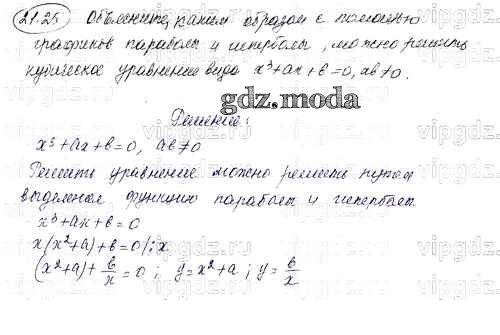 21.25 Объясните, каким образом с помощью
графиков параболы и гиперболы, можно решить
кубическое уравнение вида x³+ax+в=0, ав≠0.
gdz.moda
Решение:
x³+ax+в=0, ав≠0
Решить уравнение можно решить путем
выделения функции параболы и гипербол
x³+ax+в=0
x(x²+a)+в=0/:x
(x²+a)+в/x=0; y=x²+a; y=в/x